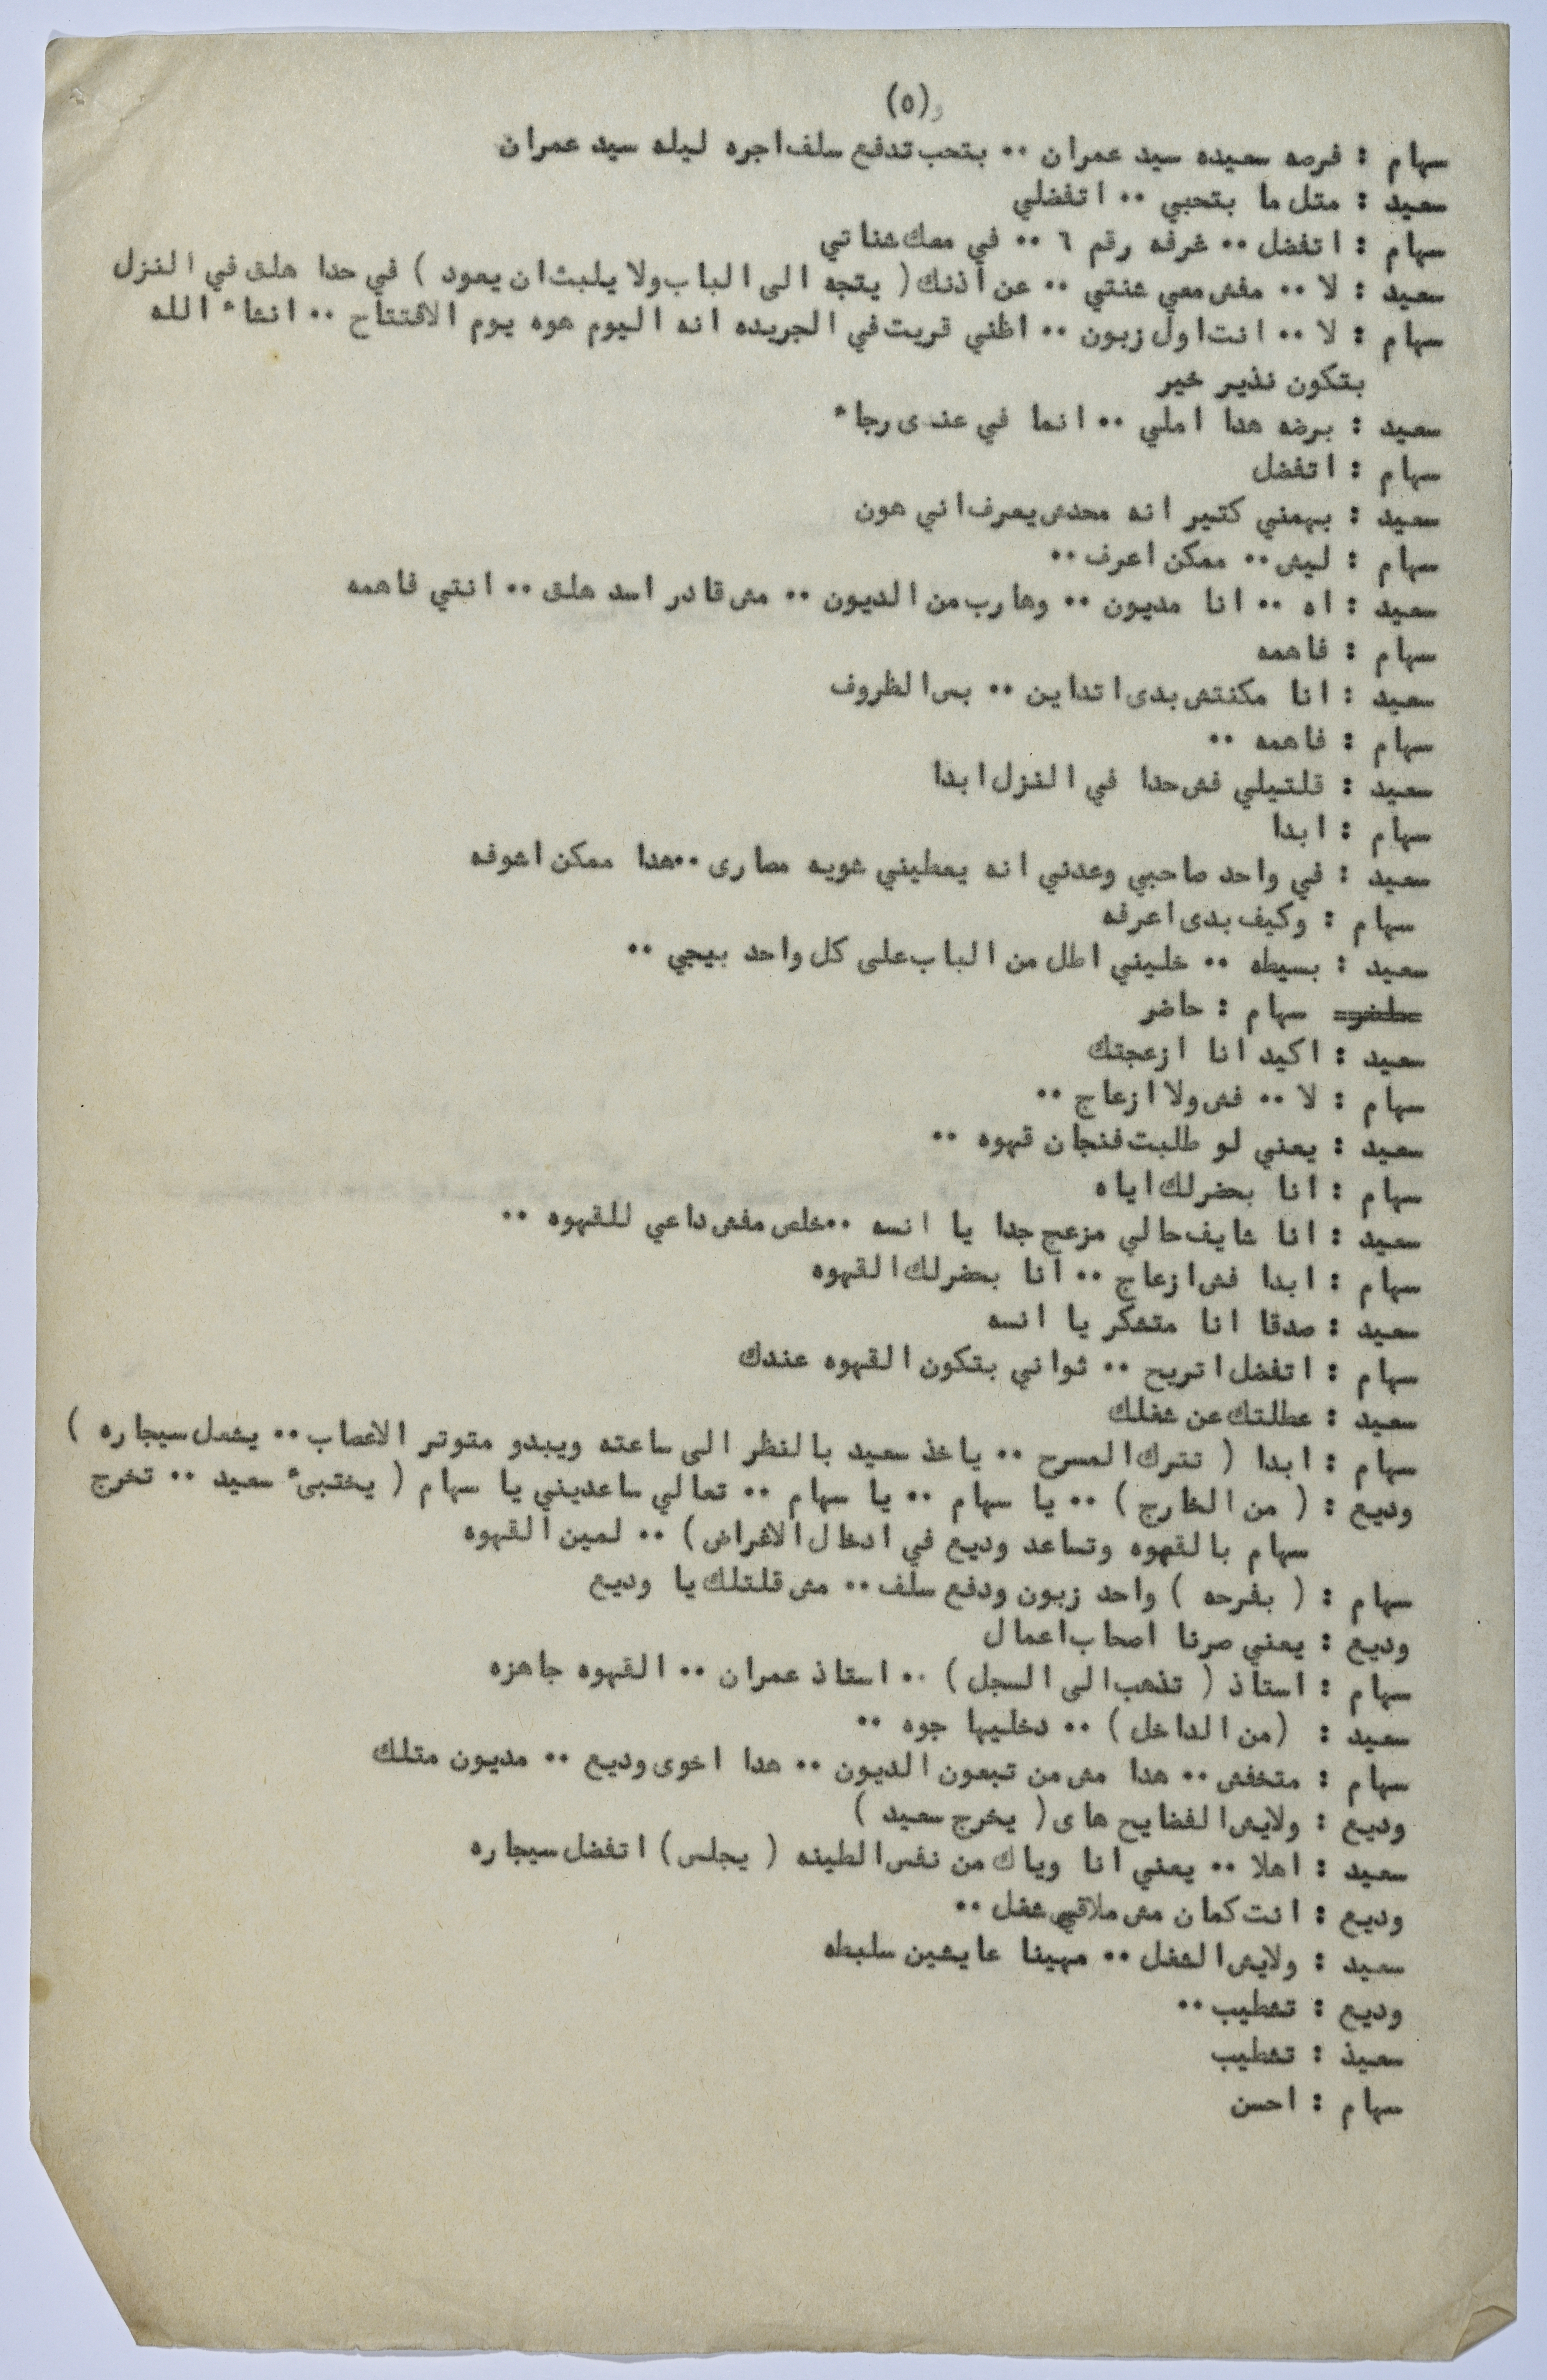 (٥)
سهام : فرصه سعيده سيد عمران ٠٠ بتحب تدفع سلف اجره ليله سيد عمران
سعيد : متل ما بتحبي ٠٠ اتفضلي
سهام : اتفضل ٠٠ غرفه رقم ٦ ٠٠ في معك شناتي
سعيد : لا ٠٠ مفش معي شنتي ٠٠ عن اذنك ( يتجه الى الباب ولا يلبث ان يعود ) في حدا هلق في النزل
سهام : لا ٠٠ انت اول زبون ٠٠ اظني قريت في الجريده انه اليوم هوه يوم الافتتاح ٠٠ انشاء الله
بتكون نذير خير
سعيد : برضه هدا املي ٠٠ انما في عندى رجاء
سهام : اتفضل
سعيد : بهمني كتير انه محدش يعرف اني هون
سهام : ليش ٠٠ ممكن اعرف ٠٠
سعيد : اه ٠٠ انا مديون ٠٠ وهارب من الديون ٠٠ مش قادر اسد هلق ٠٠ انتي فاهمه
سهام : فاهمه
سعيد : انا مكنتش بدى اتداين ٠٠ بس الظروف
سهام : فاهمه ٠٠
سعيد : قلتيلي فش حدا في النزل ابدا
سهام : ابدا
سعيد : في واحد صاحبي وعدني انه يعطيني شويه مصارى ٠٠هدا ممكن اشوفه
سهام : وكيف بدى اعرفه
سعيد : بسيطه ٠٠ خليني اطل من الباب على كل واحد بيجي ٠٠
سهام : حاضر
سعيد : اكيد انا ازعجتك
سهام : لا ٠٠ فش ولا ازعاج ٠٠
سعيد : يعني لو طلبت فنجان قهوه ٠٠
سهام : انا بحضرلك اياه
سعيد : انا شايف حالي مزعج جدا يا انسه ٠٠خلص مفش داعي للقهوه ٠٠
سهام : ابدا فش ازعاج ٠٠ انا بحضرلك القهوه
سعيد : صدقا انا متشكر يا انسه
سهام : اتفضل اتريح ٠٠ ثواني بتكون القهوه عندك
سعيد : عطلتك عن شغلك
سهام : ابدا ( تترك المسرح ٠٠ ياخذ سعيد بالنظر الى ساعته ويبدو متوتر الاعصاب ٠٠ يشعل سيجاره )
وديع : ( من الخارج ) ٠٠ يا سهام ٠٠ يا سهام ٠٠ تعالي ساعديني يا سهام ( يختبىء سعيد ٠٠ تخرج
سهام بالقهوه وتساعد وديع في ادخال الاغراض ) ٠٠ لمين القهوه
سهام : ( بفرحه ) واحد زبون ودفع سلف ٠٠ مش قلتلك يا وديع
وديع : يعني صرنا اصحاب اعمال
سهام : استاذ ( تذهب الى السجل ) ٠٠ استاذ عمران ٠٠ القهوه جاهزه
سعيد : (من الداخل ) ٠٠ دخليها جوه ٠٠
سهام : متخفش ٠٠ هدا مش من تبعون الديون ٠٠ هدا اخوى وديع ٠٠ مديون متلك
وديع : ولايش الفضايح هاى ( يخرج سعيد )
سعيد : اهلا ٠٠ يعني انا وياك من نفس الطينه ( يجلس ) اتفضل سيجاره
وديع : انت كمان مش ملاقي شغل ٠٠
سعيد : ولايش الشغل ٠٠ مهينا عايشين سلبطه
وديع : تشطيب ٠٠
سعيذ : تشطيب
سهام : احسن